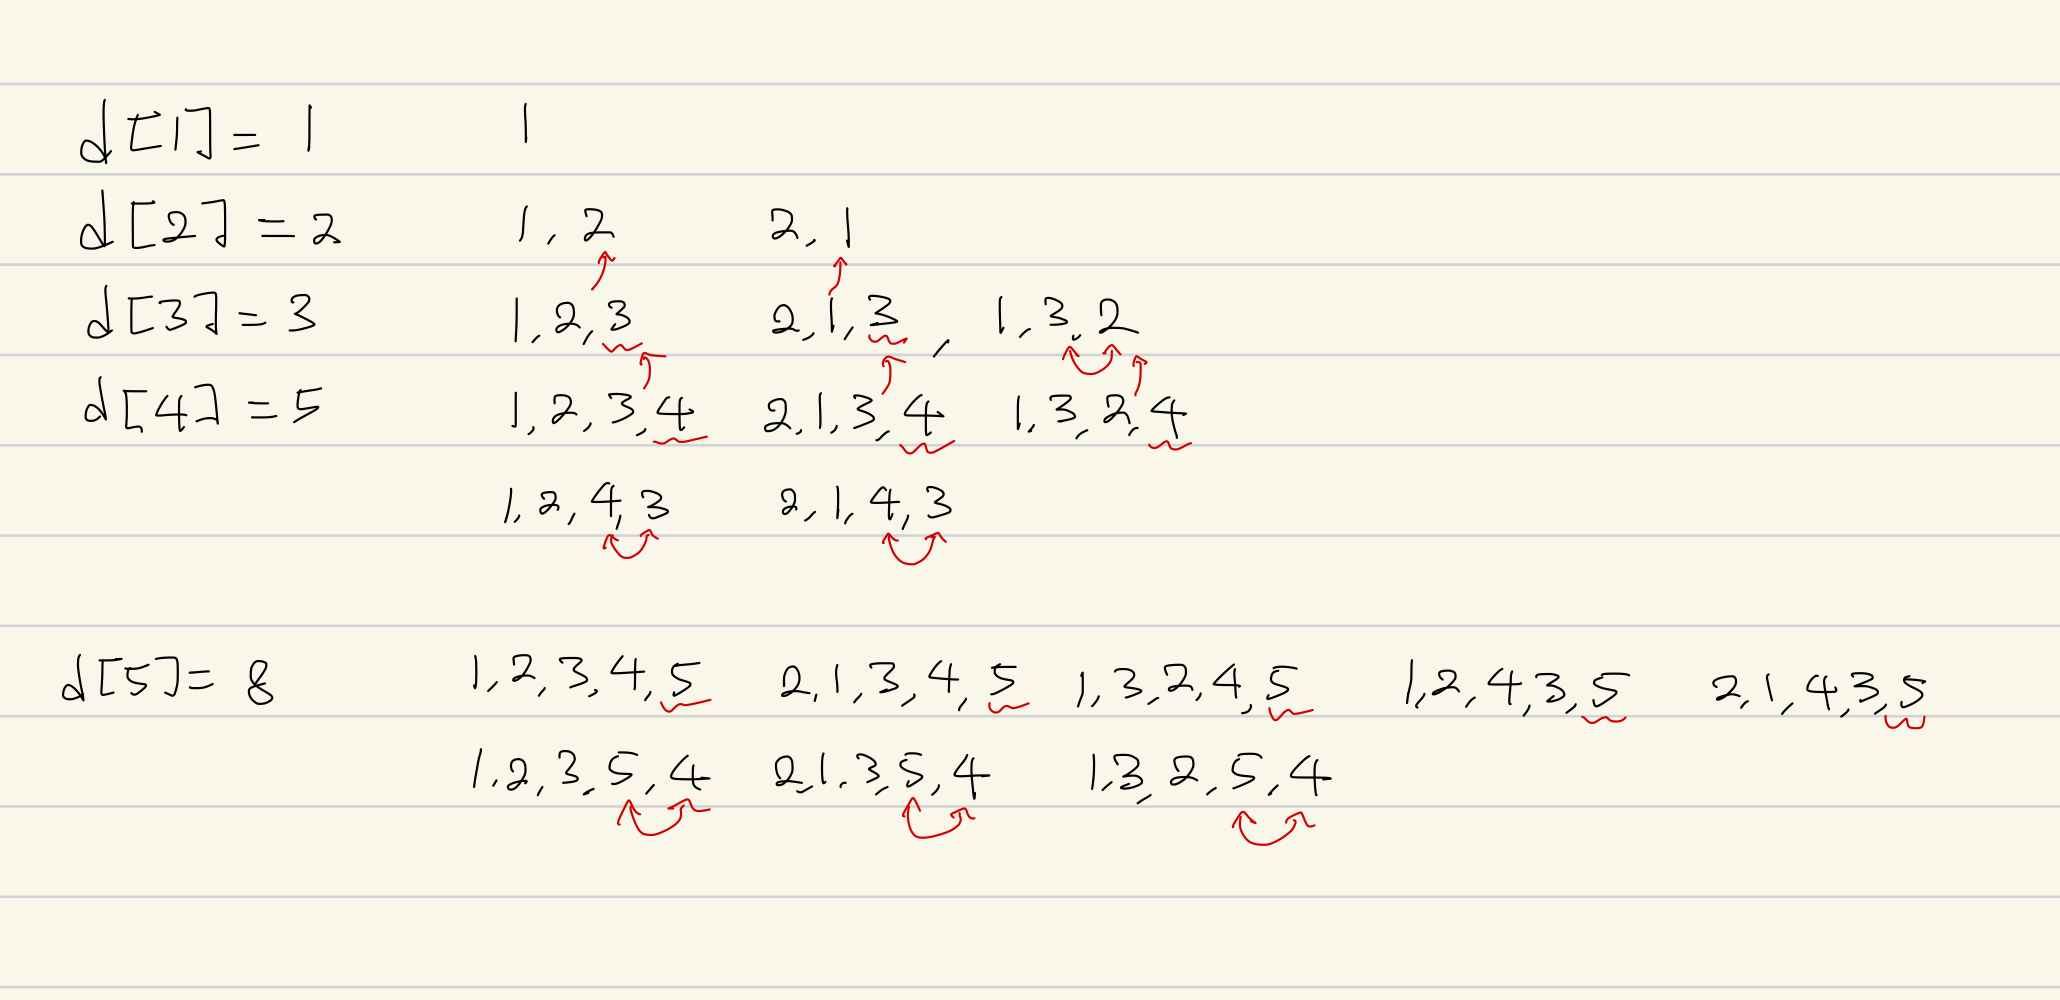 d[1] = 1 1
d[2] = 2 1, 2 2, 1
d[3] = 3 1, 2, 3 2, 1, 3 , 1, 3, 2
d[4] = 5 1, 2, 3, 4 2, 1, 3, 4 1, 3, 2, 4
1, 2, 4, 3 2, 1, 4, 3
d[5] = 8 1, 2, 3, 4, 5 2, 1, 3, 4, 5 1, 3, 2, 4, 5 1, 2, 4, 3, 5 2, 1, 4, 3, 5
1, 2, 3, 5, 4 2, 1, 3, 5, 4 1, 3, 2, 5, 4